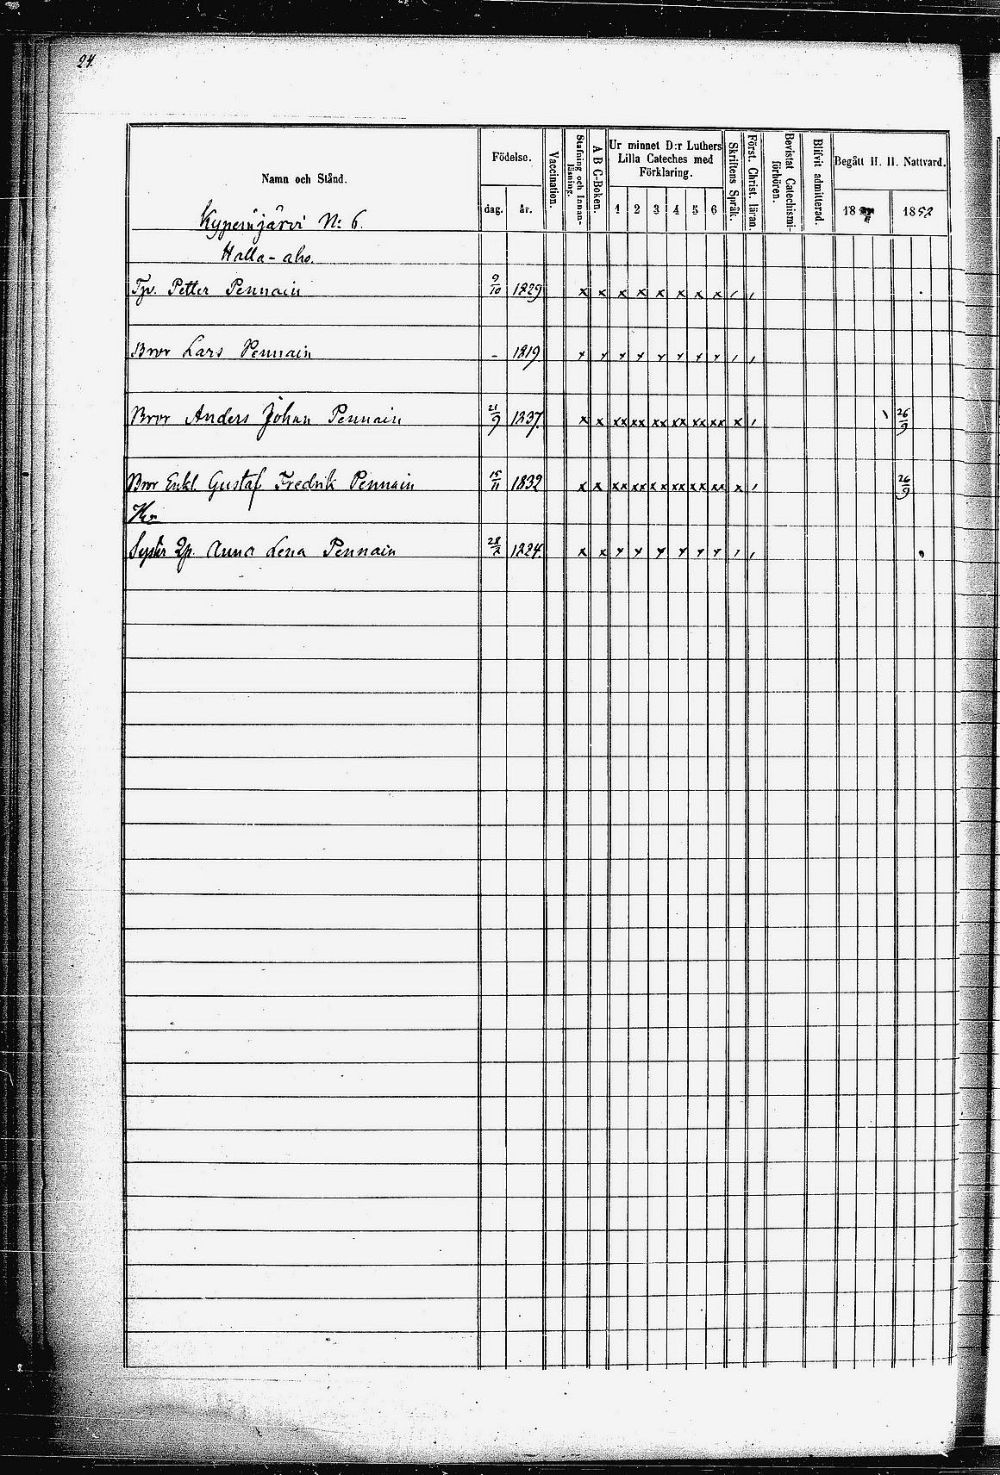 24.
Namn och Stånd.
Födelse.
dag. år.
Vaccination.
Stafning och Innan-läsning.
A B C-Boken.
Ur minnet D:r Luthers Lilla Cateches med Förklaring.
1 2 3 4 5 6
Skriftens Språk.
Först. Christ. läran.
Bevistat Catechismi-förhören.
Blifvit admitterad.
Begått H. H. Nattvard.
18 1892
N: 6.
Halla-aho.
Petter Pennain 9/10 1829 x x x x x x x x
Bror Lars Pennain - 1819
Bror Anders Johan Pennain 21/9 1837. x x xx xx xx xx xx xx x 26/9
Bror Enkl. Gustaf Fredrik Pennain 15/11 1832 x x xx xx xx xx xx xx x 26/9
Syster Anna Lena Pennain 1824. x x